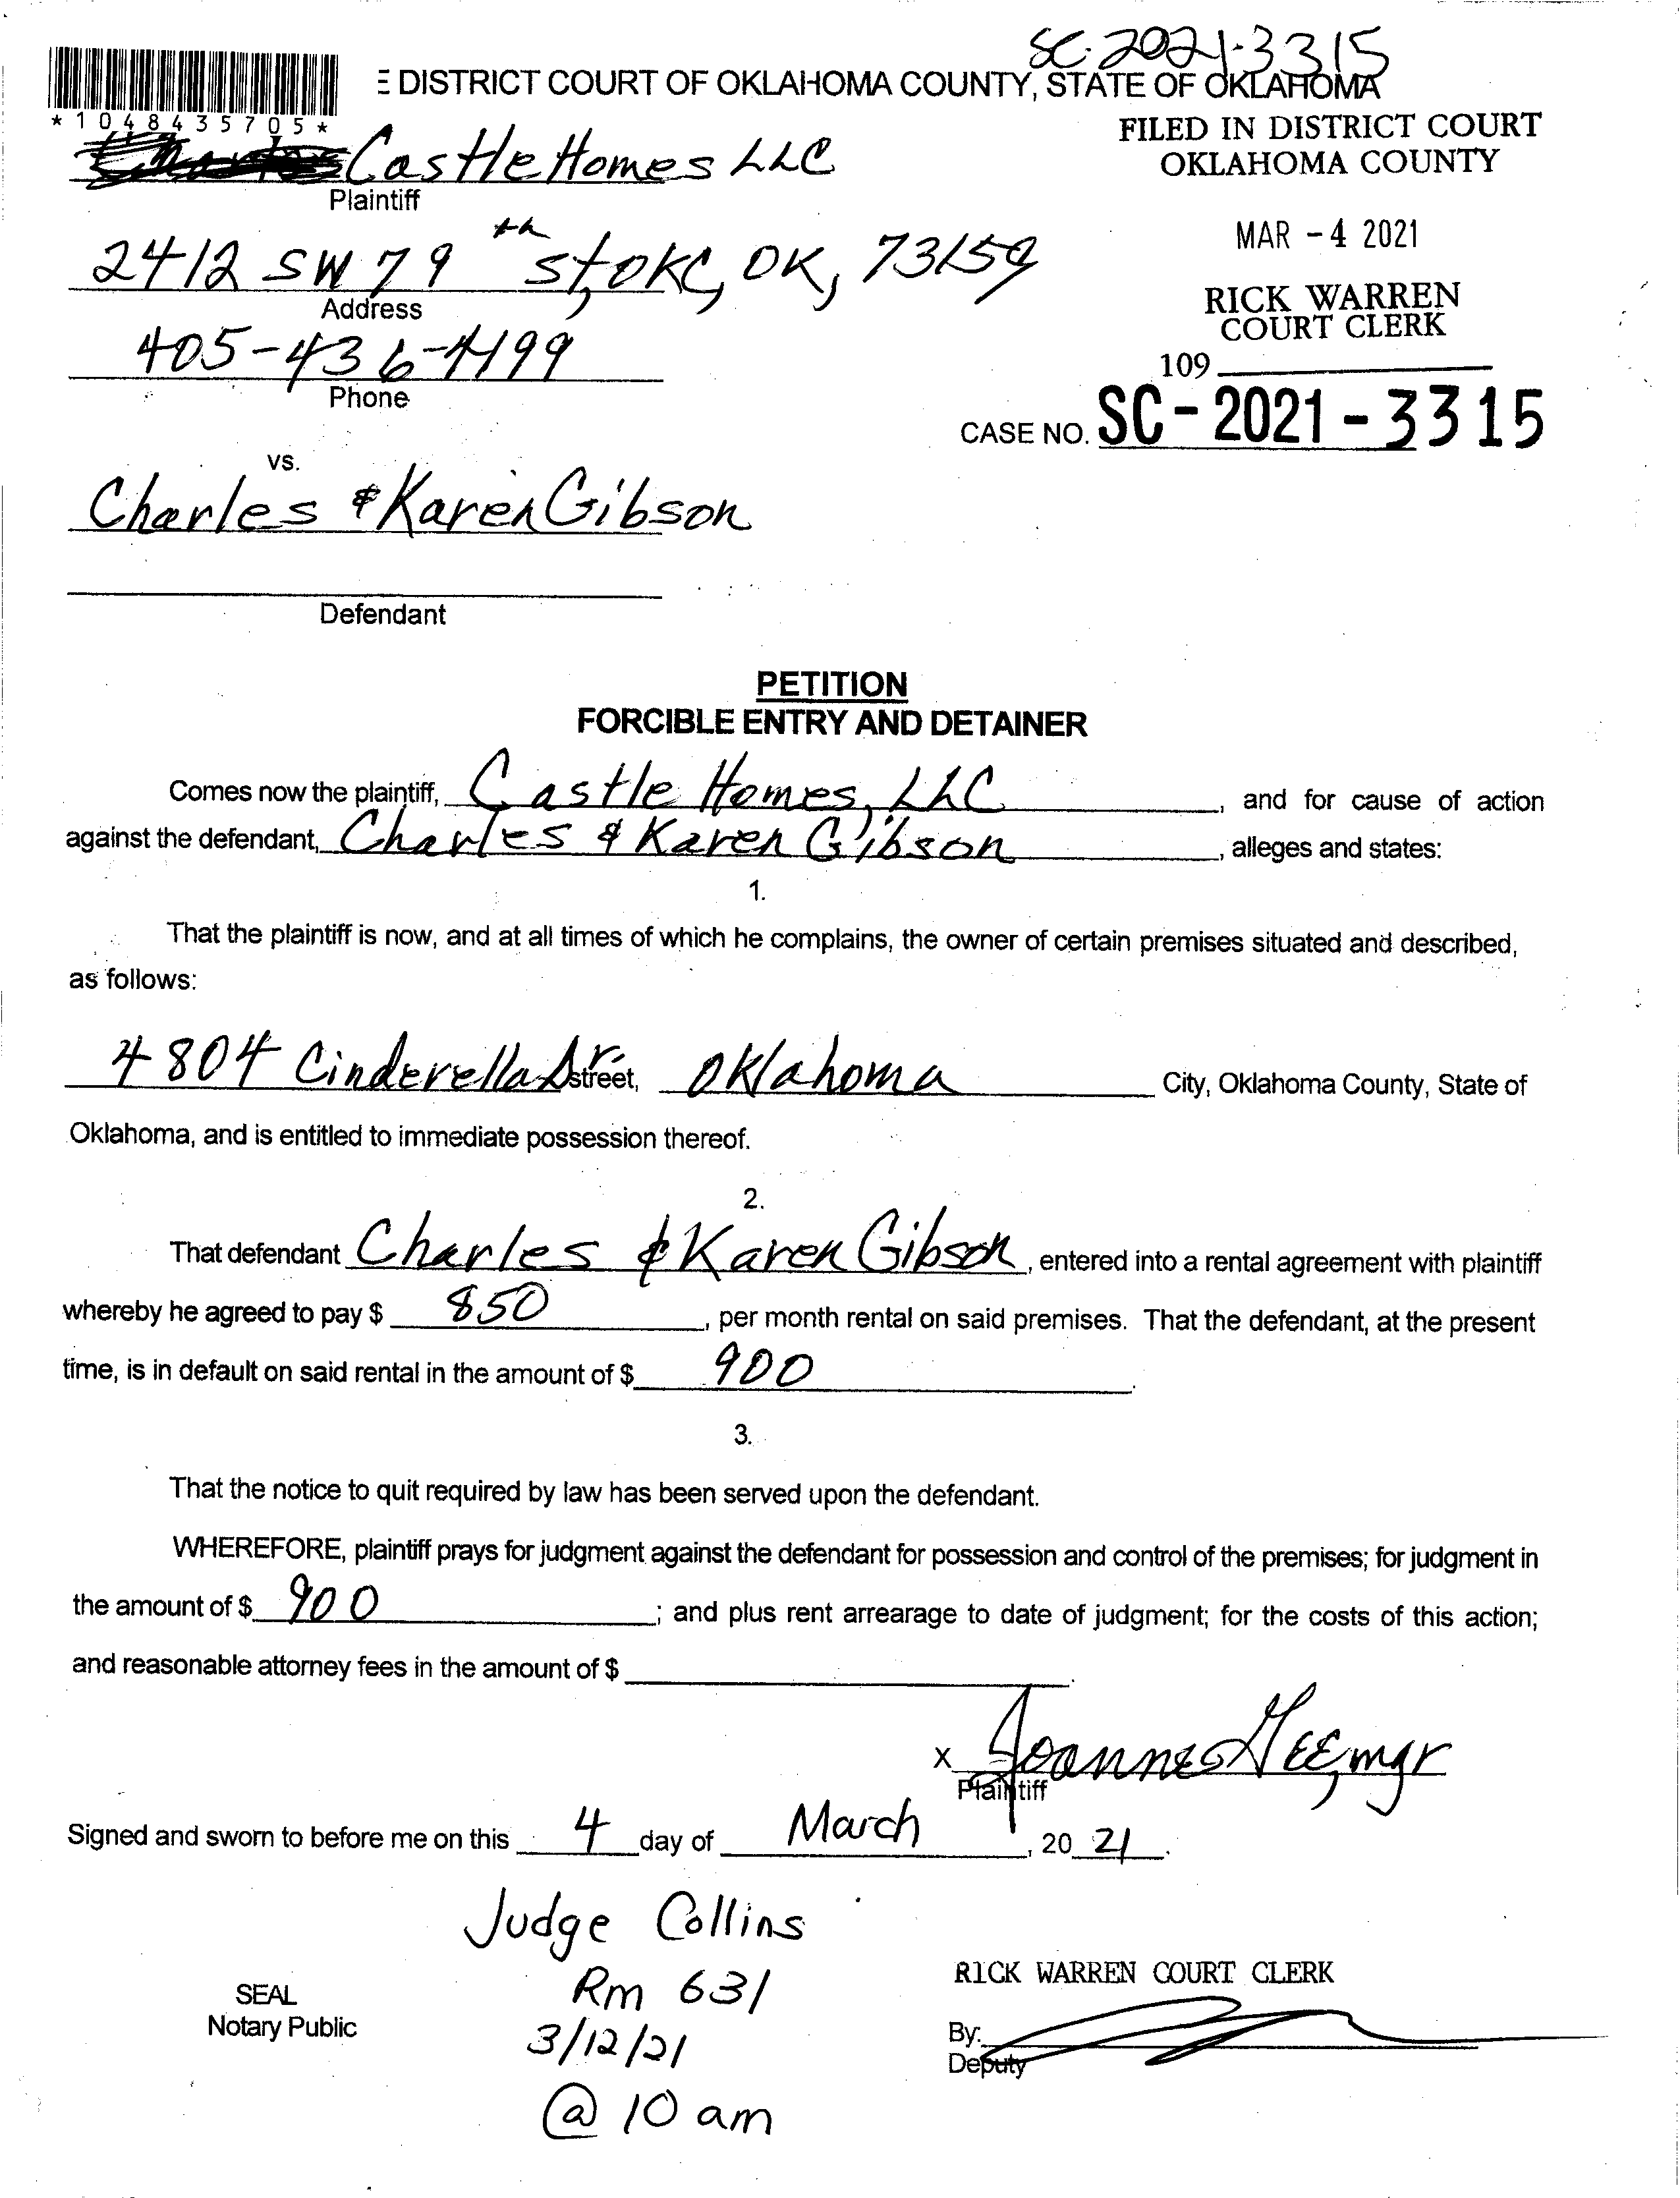 SC-2021-3315
E DISTRICT COURT OF OKLAHOMA COUNTY, STATE OF OKLAHOMA
*1048435705*
FILED IN DISTRICT COURT
OKLAHOMA COUNTY
Castle Homes LLC
Plaintiff
MAR -4 2021
2412 SW 79th St, OKC, OK, 73159
Address
RICK WARREN
COURT CLERK
405-436-4199
Phone
109
CASE NO. SC-2021-3315
vs.
Charles & Karen Gibson
Defendant
PETITION
FORCIBLE ENTRY AND DETAINER
Comes now the plaintiff, Castle Homes, LLC, and for cause of action
against the defendant, Charles & Karen Gibson, alleges and states:
1.
That the plaintiff is now, and at all times of which he complains, the owner of certain premises situated and described,
as follows:
4804 Cinderella Dr. Street, Oklahoma City, Oklahoma County, State of
Oklahoma, and is entitled to immediate possession thereof.
2.
That defendant Charles & Karen Gibson, entered into a rental agreement with plaintiff
whereby he agreed to pay $ 850, per month rental on said premises. That the defendant, at the present
time, is in default on said rental in the amount of $ 900.
3.
That the notice to quit required by law has been served upon the defendant.
WHEREFORE, plaintiff prays for judgment against the defendant for possession and control of the premises; for judgment in
the amount of $ 900; and plus rent arrearage to date of judgment; for the costs of this action;
and reasonable attorney fees in the amount of $ .
X mgr
Plaintiff
Signed and sworn to before me on this 4 day of March, 20 21.
Judge Collins
Rm 631
3/12/21
@ 10 am
SEAL
Notary Public
RICK WARREN COURT CLERK
By:
Deputy